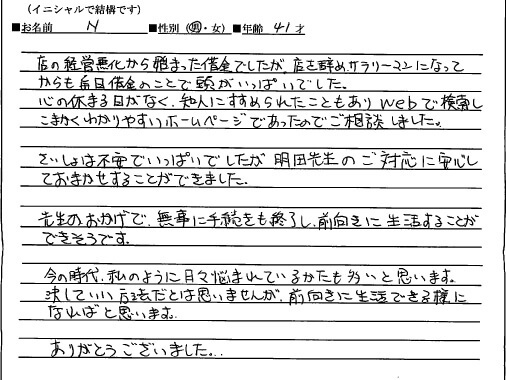 (イニシャルで結構です)
■お名前 N ■性別(男・女)■年齢 41才
店の経営悪化から始まった借金でしたが、店を辞めサラリーマンになって
からも毎日借金のことで頭がいっぱいでした。
心の休まる日がなく、知人にすすめられたこともありwebで検索し
こまかくわかりやすいホームページであったのでご相談しました。
さいしょは不安でいっぱいでしたが 明田先生のご対応に安心し
ておまかせすることができました。
先生のおかげで、無事に手続きも終了し、前向きに生活することが
できそうです。
今の時代、私のように日々悩まれているかたも多いと思います。
決していい方法だとは思いませんが、前向きに生活できる様に
なればと思います。
ありがとうございました。